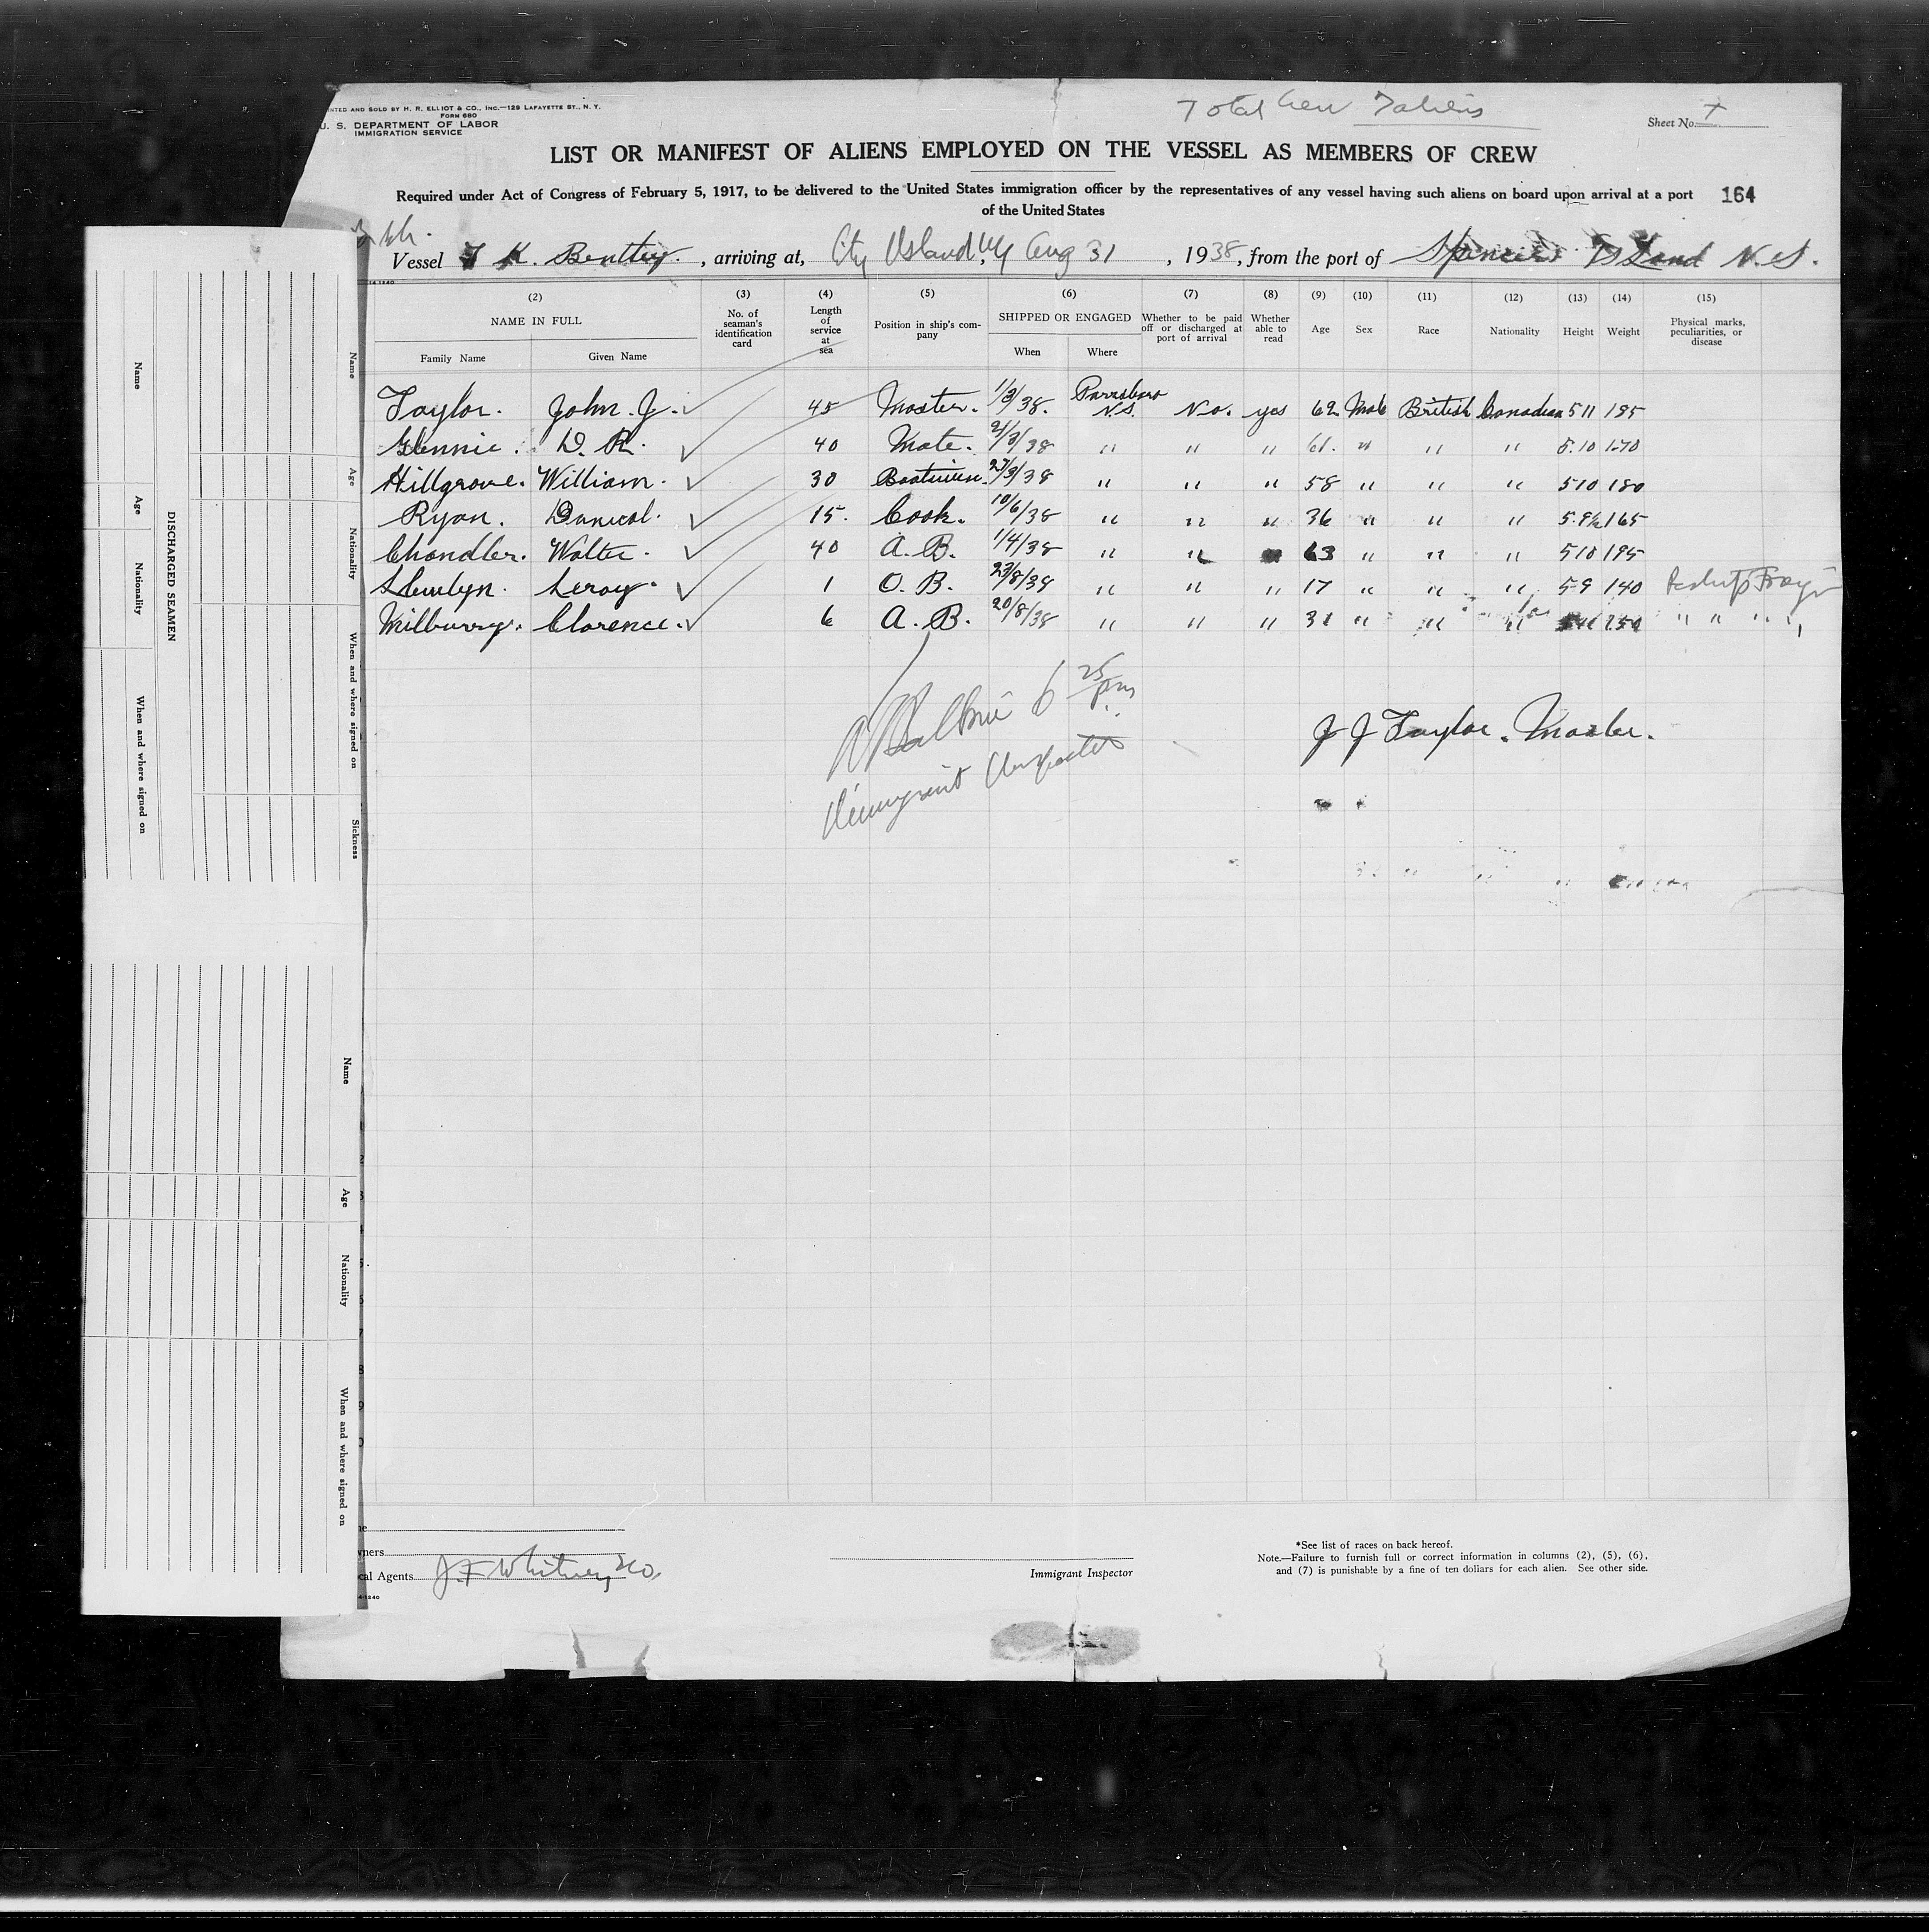 NTED AND SOLD BY H. R. ELLIOT & CO., INC.—129 LAFAYETTE ST., N. Y.
FORM 680
U. S. DEPARTMENT OF LABOR
IMMIGRATION SERVICE
Total Crew 7 aliens
Sheet No.
LIST OR MANIFEST OF ALIENS EMPLOYED ON THE VESSEL AS MEMBERS OF CREW
Required under Act of Congress of February 5, 1917, to be delivered to the United States immigration officer by the representatives of any vessel having such aliens on board upon arrival at a port
of the United States
164
Vessel K. Bentley. , arriving at, City Island, NY Aug 31 , 1938, from the port of Spencers Island N.S.
(2) (3) (4) (5) (6) (7) (8) (9) (10) (11) (12) (13) (14) (15)
NAME IN FULL No. of seaman's identification card Length of service at sea Position in ship's company SHIPPED OR ENGAGED Whether to be paid off or discharged at port of arrival Whether able to read Age Sex Race Nationality Height Weight Physical marks, peculiarities, or disease
Family Name Given Name When Where
Taylor. John. J. 45 Master. 1/3/38. Parrsboro N.S. No. yes 62 Male British Canadian 5 11 195
Glennie. D. R. 40 Mate. /38 " " " 61. " " " 5.10 170
Hillgrove. William. 30 27/3/38 " " " 58 " " " 5 10 180
Ryan. 15. Cook. 10/6/38 " " " 36 " " " 5.9½ 165
Chandler. Walter. 40 A. B. 1/4/38 " " 63 " " " 5 10 195
Leroy. 1 O. B. 23/8/38 " " " 17 " " " 5 9 140
Milburry. Clarence. 6 A. B. 20/8/38 " " " 31 " " " " " " "
6 25 pm
Immigrant Inspector
J J Taylor. Master.
Name
Age
Nationality
When and where signed on
DISCHARGED SEAMEN
Name
Age
Nationality
When and where signed on
Sickness
Name
Age
Nationality
When and where signed on
wners
cal Agents J. F. Whitney & Co.
Immigrant Inspector
*See list of races on back hereof.
Note.—Failure to furnish full or correct information in columns (2), (5), (6),
and (7) is punishable by a fine of ten dollars for each alien. See other side.